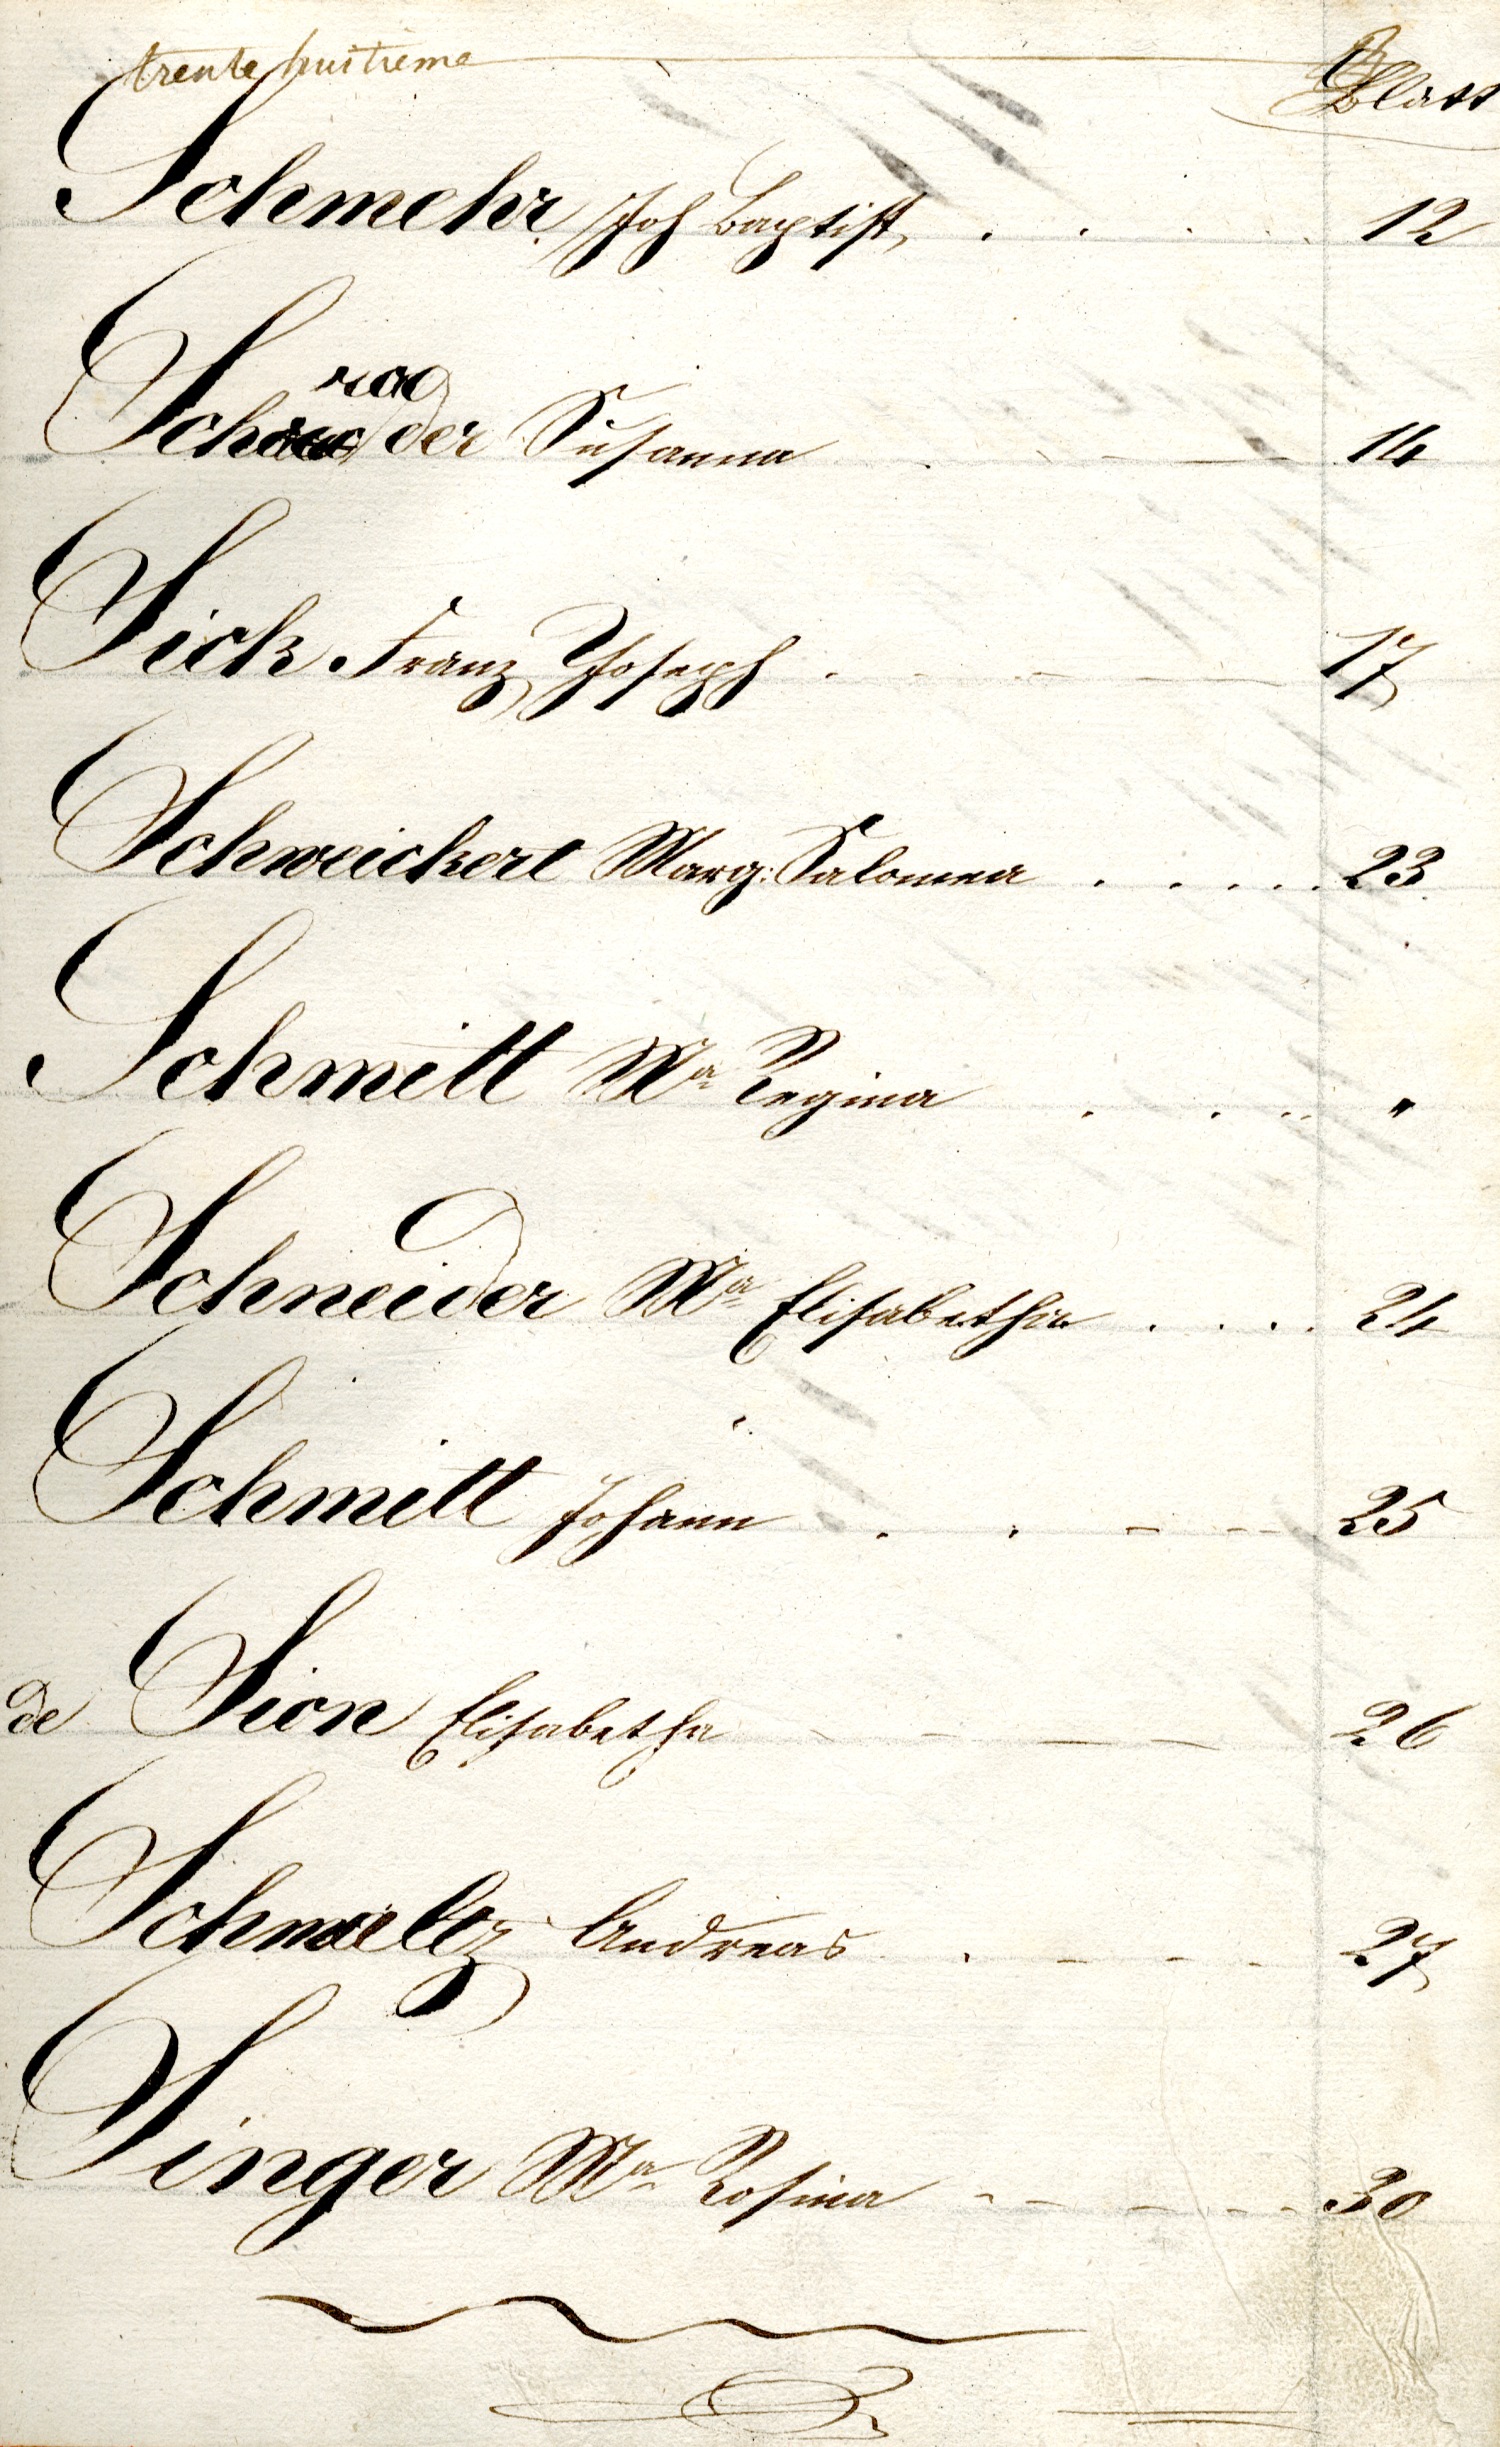 trente huitieme
Blatt
Schmehr Joh Baptist, . . . . 12
Schrader Susanna . - - — 14
Sick Franz Joseph . - - - — 17
Schweickert Marg: Salomea . . . . . 23
Schmitt Ma Regina . . . . "
Schneider Ma Elisabetha . . . . 24
Schmitt Johann . . - - - 25
de Sion Elisabetha - - — — 26
Schmeltz Andreas . - - - - 27
Singer Ma Rosina - - - - - 30